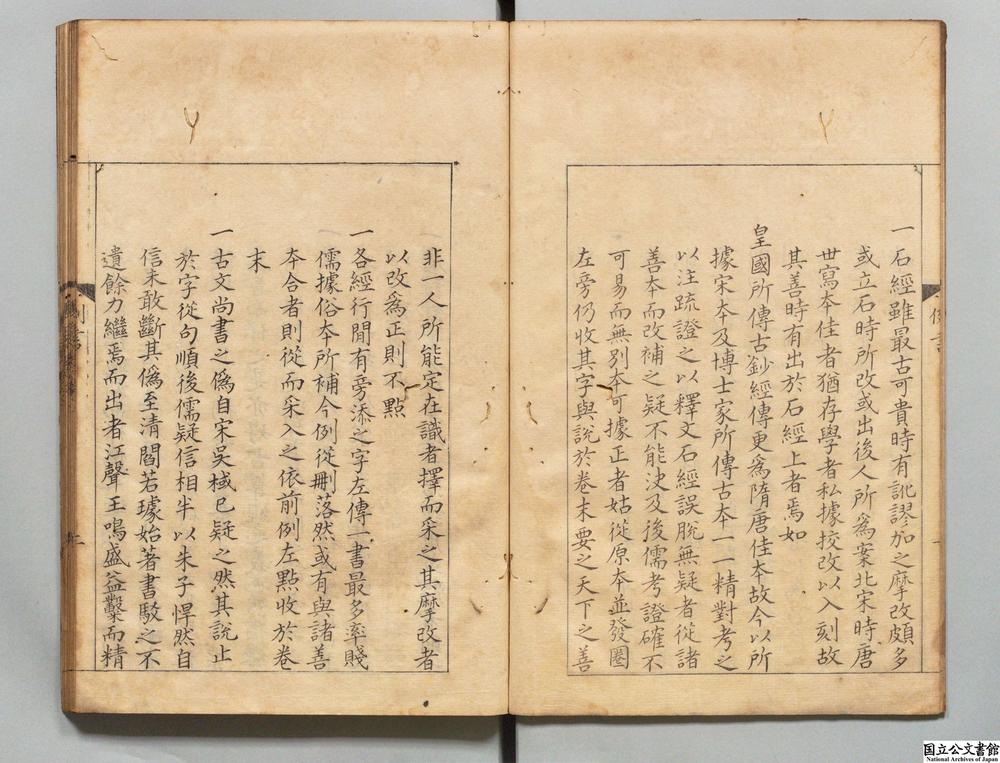 一石經雖最古可貴時有訛謬加之摩改頗多
或立石時所改或出後人所爲案北宋時唐
世寫本佳者猶存學者私據挍改以入刻故
其善時有出於石經上者焉如
皇國所傳古鈔經傳更爲隋唐佳本故今以所
據宋本及博士家所傳古本一一精對考之
以注疏證之以釋文石經誤脫無疑者從諸
善本而改補之疑不能决及後儒考證確不
可易而無別本可據正者姑從原本並發圈
左旁仍收其字與說於卷末要之天下之善
非一人所能定在識者擇而采之其摩改者
以改爲正則不點
一各經行間有旁添之字左傳一書最多率賤
儒據俗本所補今例從刪落然或有與諸善
本合者則從而采入之依前例左點收於卷
末
一古文尚書之僞自宋吳棫已疑之然其說止
於字從句順後儒疑信相半以朱子悍然自
信未敢斷其僞至清閻若璩始著書駁之不
遺餘力繼焉而出者江聲王鳴盛益鑿而精
例言
国立公文書館
National Archives of Japan